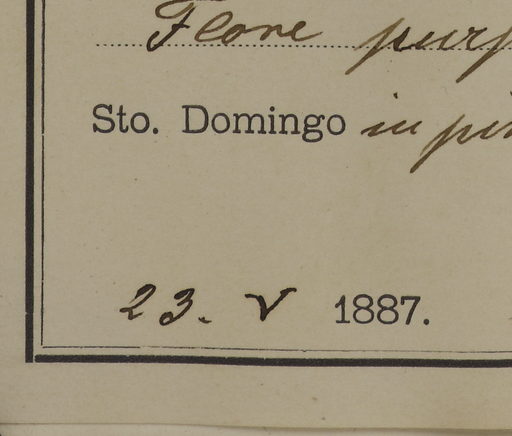 Flore purp
Sto. Domingo in pin
23. V 1887.